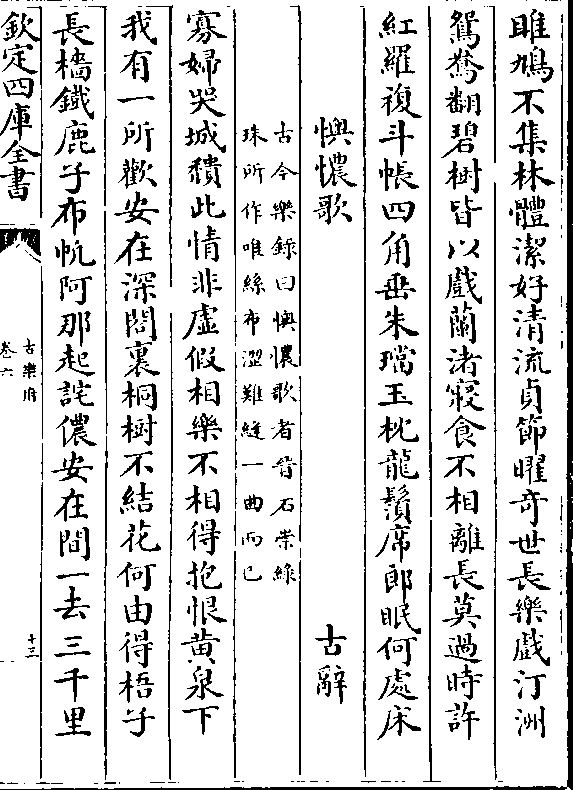 雎鳩不集林體潔好清流貞節曜竒世長樂戲汀洲
鴛鴦翻碧樹皆以戲蘭渚寢食不相離長莫過時許
紅羅複斗帳四角垂朱璫玉枕龍鬚席郎眠何處床
懊憹歌　古辭
古今樂錄曰懊憹歌者晉石崇綠
珠所作唯絲布澀難縫一曲而已
寡婦哭城穨此情非虛假相樂不相得抱恨黄泉下
我有一所歡安在深閣裏桐樹不結花何由得梧子
長檣鐵鹿子布帆阿那起詫儂安在間一去三千里
欽定四庫全書
古樂府
卷六
十三